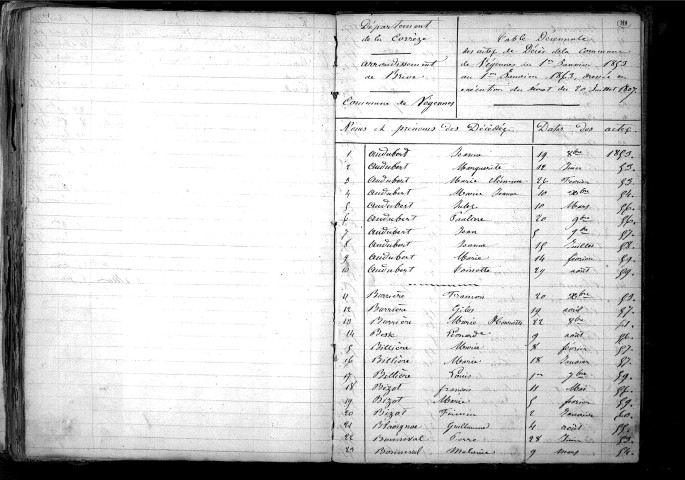 Département
de la Corrèze
arrondissement
de Brive
Commune de Végennes
Table Décennale
des actes de Décès de la Commune
de Végennes du 1er Janvier 1853
au 1er Janvier 1863, dressée en
exécution du décret du 20 Juillet 1807.
Noms et prénoms des Décédés Dates des actes
1 Audubert Jeanne 19 8bre 1853.
2 Audubert Marguerite 12 Juin 53.
3 Audubert Marie 53.
4 Audubert Marie Jeanne 10 Xbre 54.
5 Audubert Jules 10 Mars 56.
6 Audubert Pauline 20 9bre 56.
7 Audubert Jean 5 57.
8 Audubert Jeanne 15 Juillet 58.
9 Audubert Marie 14 février
10 Audubert Toinette 29 août 59.
11 Barrière 20 Xbre 53.
12 Barrière Giles 19 août 57.
13 Barrière Marie Henriette 22 8bre 61.
14 Léonarde 9 août 56.
15 Billière Marie 8 février 57.
16 Billière Marie 18 Janvier 57.
17 Billière Louis 1er 59.
18 Bizot françois 11 Mai 56.
19 Bizot Marie 5 février 59.
20 Bizot Firmin 2 Janvier 60.
21 Guillaume 4 août
22 Bonneval Pierre 28 Juin 53.
23 Bonneval Mathurine 9 mars 54.